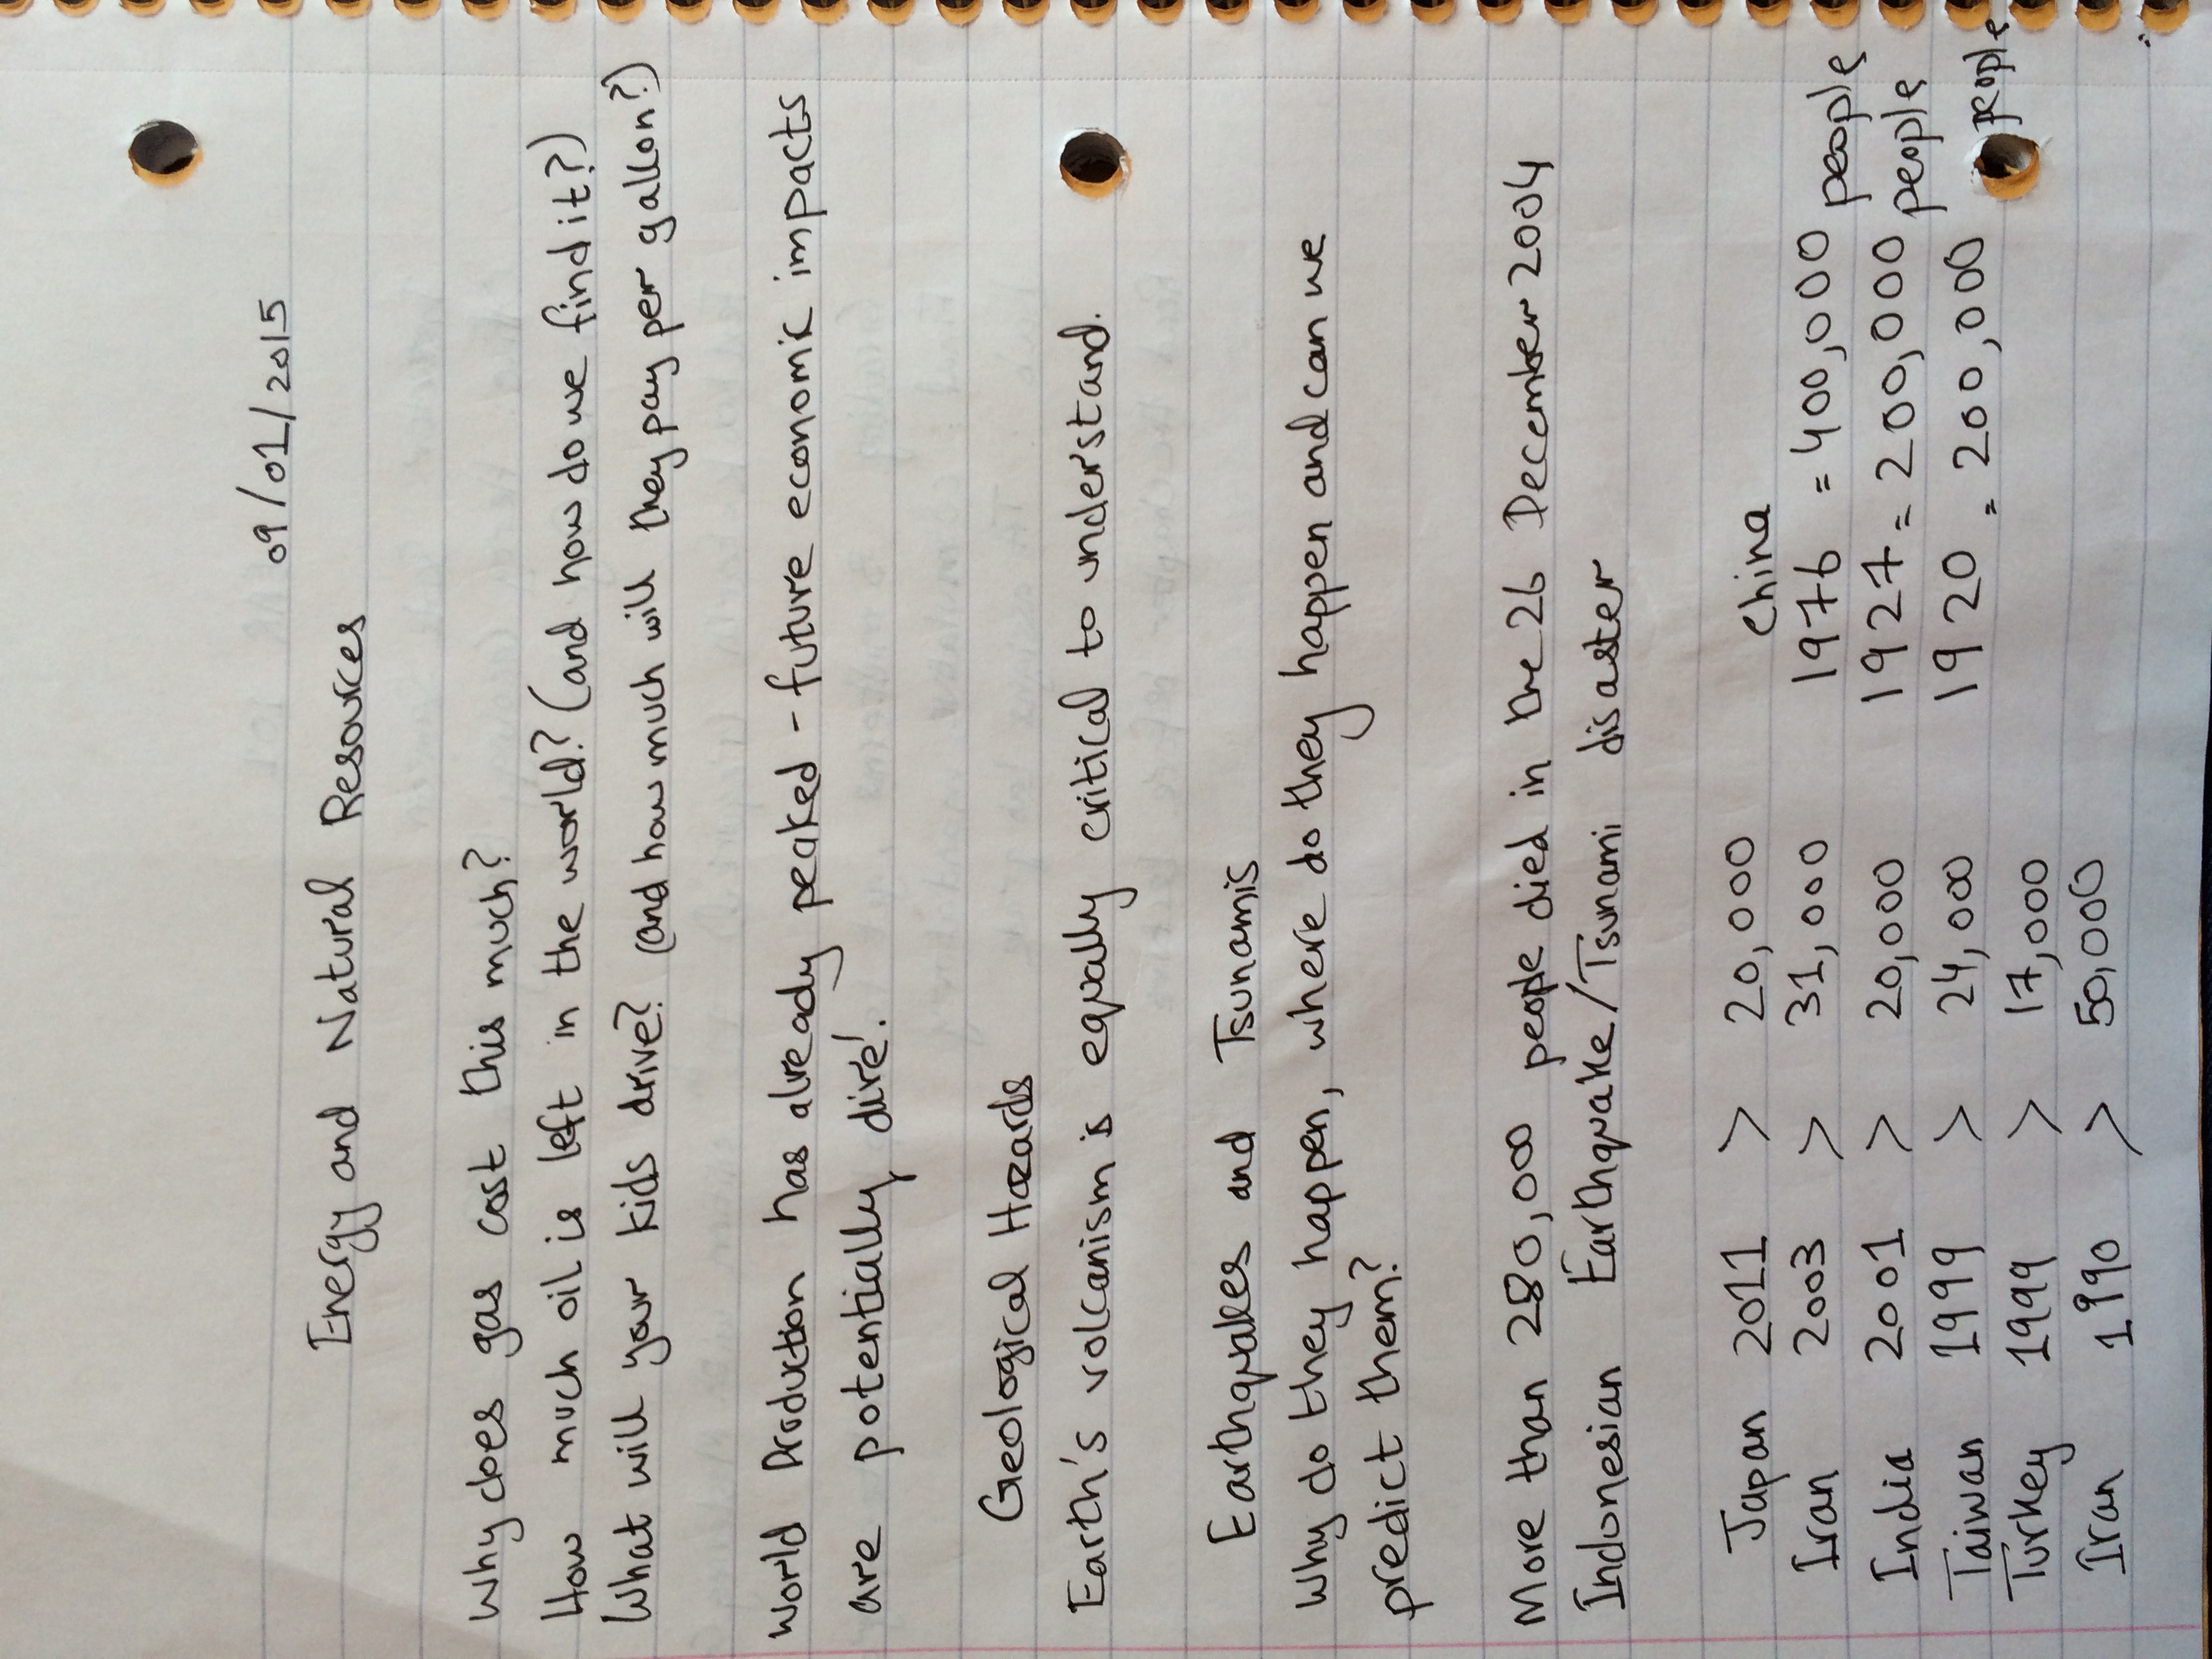 09/01/2015
Energy and Natural Resources
Why does gas cost this much?
How much oil is left in the world? (and how do we find it?)
What will your kids drive? (and how much will they pay per gallon?)
World Production has already peaked - future economic impacts
are potentially dire!
Geological Hazards
Earth's volcanism is equally critical to understand.
Earthquakes and Tsunamis
Why do they happen, where do they happen and can we
predict them?
More than 280,000 people died in the 26 December 2004
Indonesian Earthquake/Tsunami disaster
Japan 2011 > 20,000 China
Iran 2003 > 31,000 1976 = 400,000 people
India 2001 > 20,000 1927 = 200,000 people
Taiwan 1999 > 24,000 1920 = 200,000 people
Turkey 1999 > 17,000
Iran 1990 > 50,000